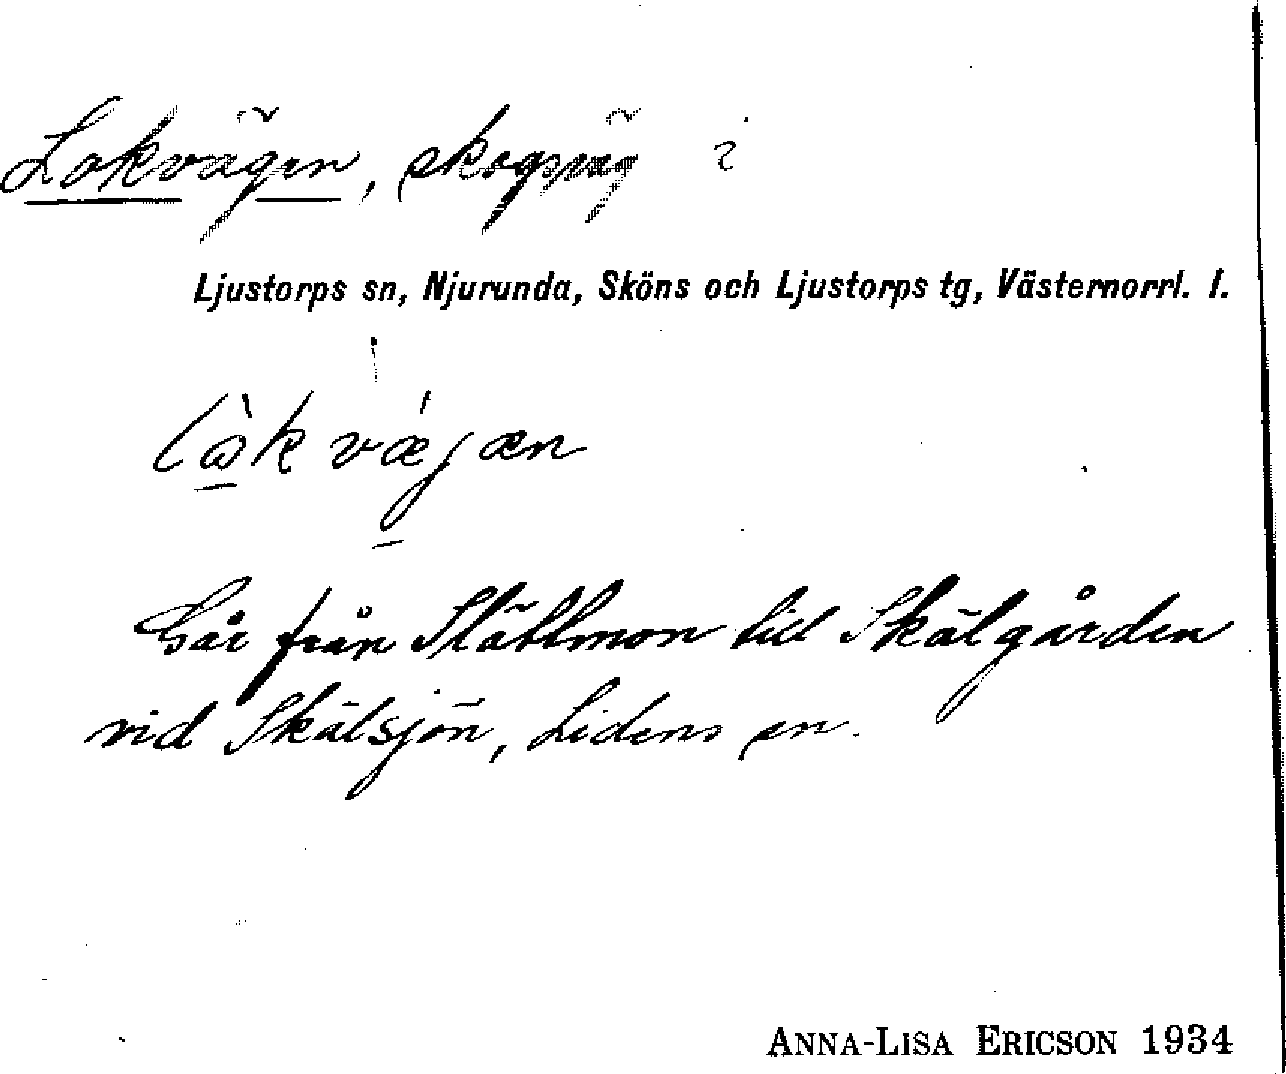 Lokvägen, skogsväg i
Ljustorps sn, Njurunda, Sköns och Ljustorps tg, Västernorrl. l.
Går från Slättmon till Skälgården
vid Skälsjön, Lidens sn.
ANNA-LISA ERICSON 1934